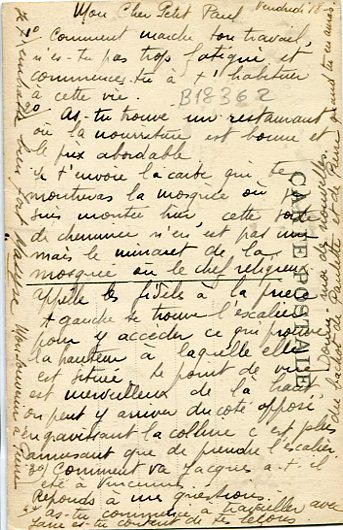 Mon Cher Petit Paul Vendredi 18
1º Comment marche ton travail,
n'es-tu pas trop fatigué et
commences-tu à t'habituer
à cette vie.
B18362
2º As-tu trouvé un restaurant
où la nourriture est bonne et
le prix abordable
Je t'envoie la carte qui te
montrera la mosquée où
suis montée hier, cette sorte
de cheminée n'en est pas une
mais le minaret de la
mosquée où le chef religieux
appelle les fidèles à la prière
à gauche se trouve l'escalier
pour y accéder ce qui prouve
la hauteur à laquelle elle
est située le point de vue
est merveilleux de là haut
on peut y arriver du coté opposé
en gravissant la colline c'est plus
amusant que de prendre l'escalier.
3º) Comment va Jacques a-t-il
été à Vincennes
Réponds à mes questions.
as-tu commencé à travailler avec
es-tu content de te
CARTE POSTALE
Je t'embrasse bien fort
Mon bonjour à
Donne-moi des nouvelles
du cachot de Paulette et de Pierre quand tu en auras